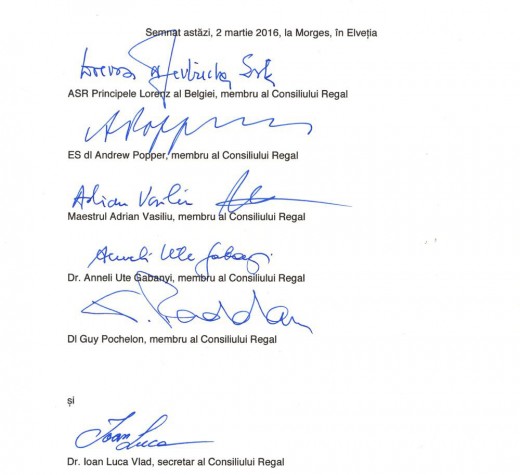 Semnat astăzi, 2 martie 2016, la Morges, în Elveția
ASR Principele Lorenz al Belgiei, membru al Consiliului Regal
APopper
ES dl Andrew Popper, membru al Consiliului Regal
Adrian Vasiliu
Maestrul Adrian Vasiliu, membru al Consiliului Regal
Anneli Ute Gabanyi
Dr. Anneli Ute Gabanyi, membru al Consiliului Regal
Dl Guy Pochelon, membru al Consiliului Regal
și
Ioan Luca
Dr. Ioan Luca Vlad, secretar al Consiliului Regal